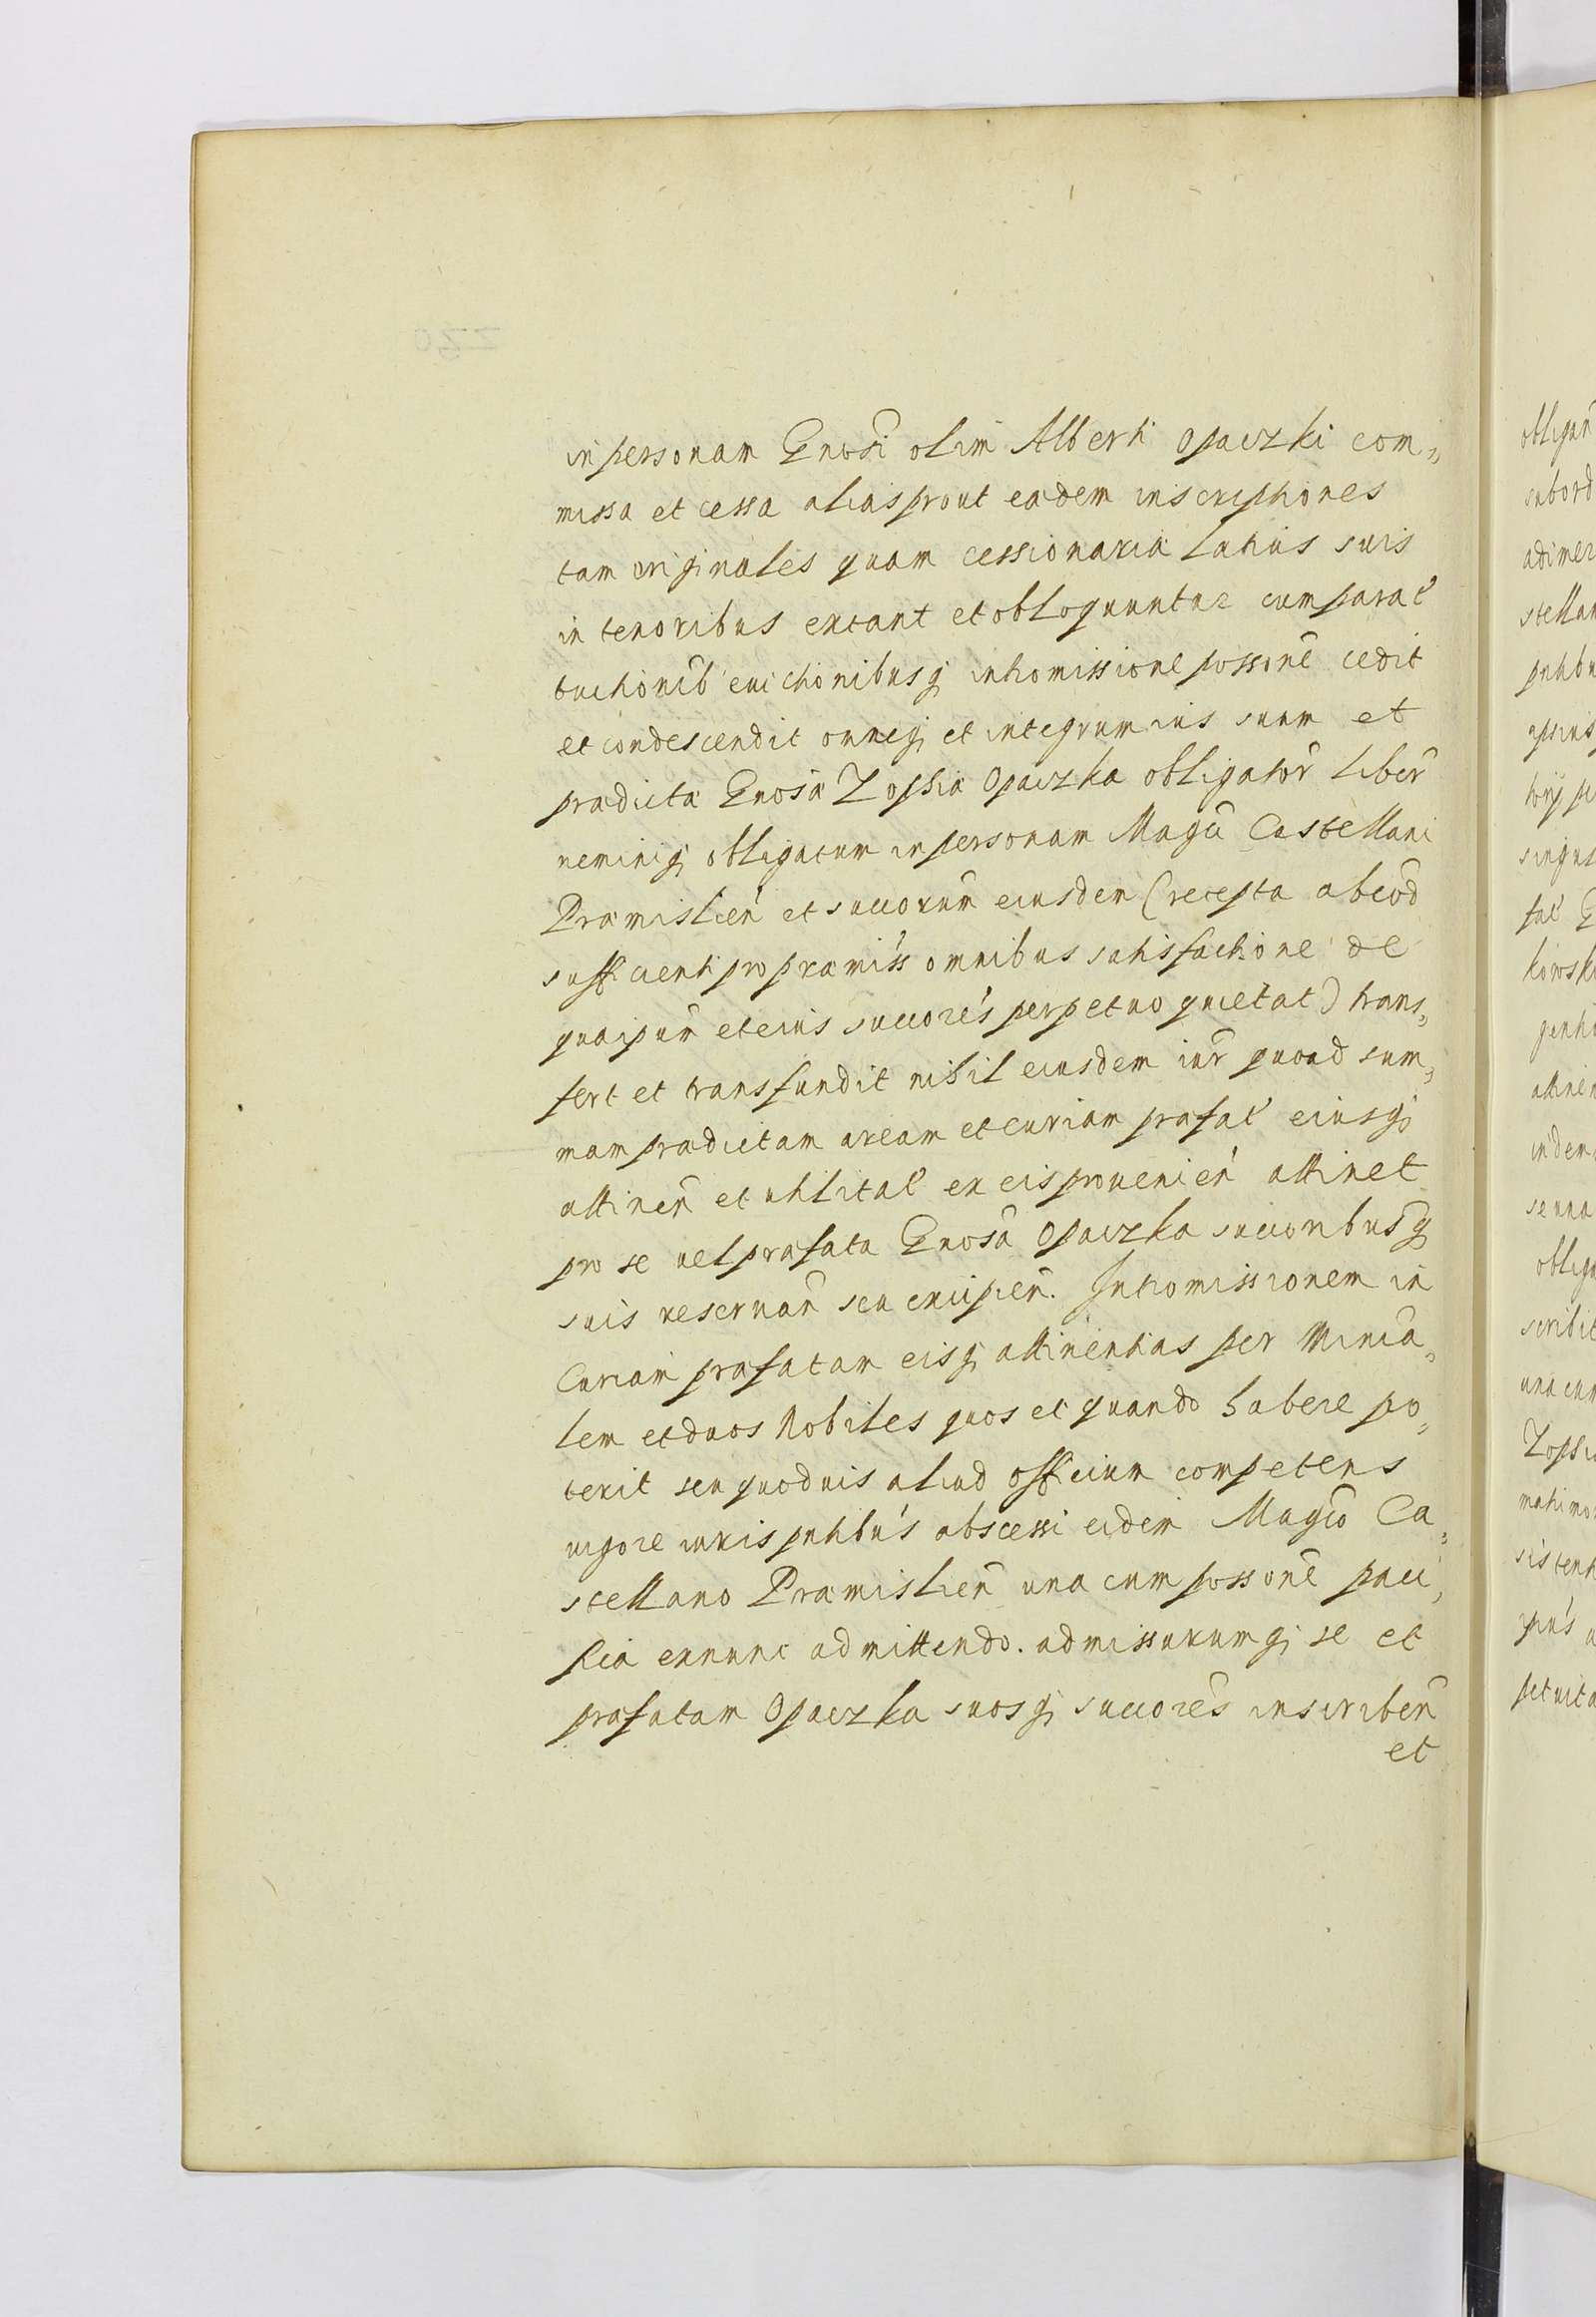 in personam Gnosi olim Alberti Opaczki com„
missa et cessa alias prout eadem inscriptiones
tam originales quam cessionaria latius suis
in tenoribus extant et obloquuntur cum parat
euictionibusq intromissione possone cedit
et condescendit omneq et integrum ius suum et
pradicta Gnosa Zophia Opaczka obligator liber
neminiq obligatum in personam Magci Castellani
Pramislien et succorum eiusdem (recepta ab eod
sufficienti pro pramiss omnibus satisfactione de
qua ipsum et eius succores perpetuo quietat) trans„
fert et transfundit nihil eiusdem iur quoad sum„
mam pradictam aream et curiam prafat eiusq
attinen et utilitat ex eis prouenien attinet
pro se uel prafata Gnosa Opaczka succoribusq
suis reseruan seu excipien. Intromissionem in
Curiam prafatam eisq attinentias per Minia„
lem et duos Nobiles quos et quando habere po„
terit seu quoduis aliud officium competens
uigore iuris pntibus abscessi eidem Magco Ca„
stellano Pramislien una cum possone paci„
fica exnunc admittendo. admissurumq se et
prafatam Opaczka suosq succores inscriben
et
obligan
subord
adimer
stellan
pntibu
ipsius
singul
fat G
kowsk
attinen
indem
se una
oblig
scribit
una cum
Zophia
matrimo
sistent